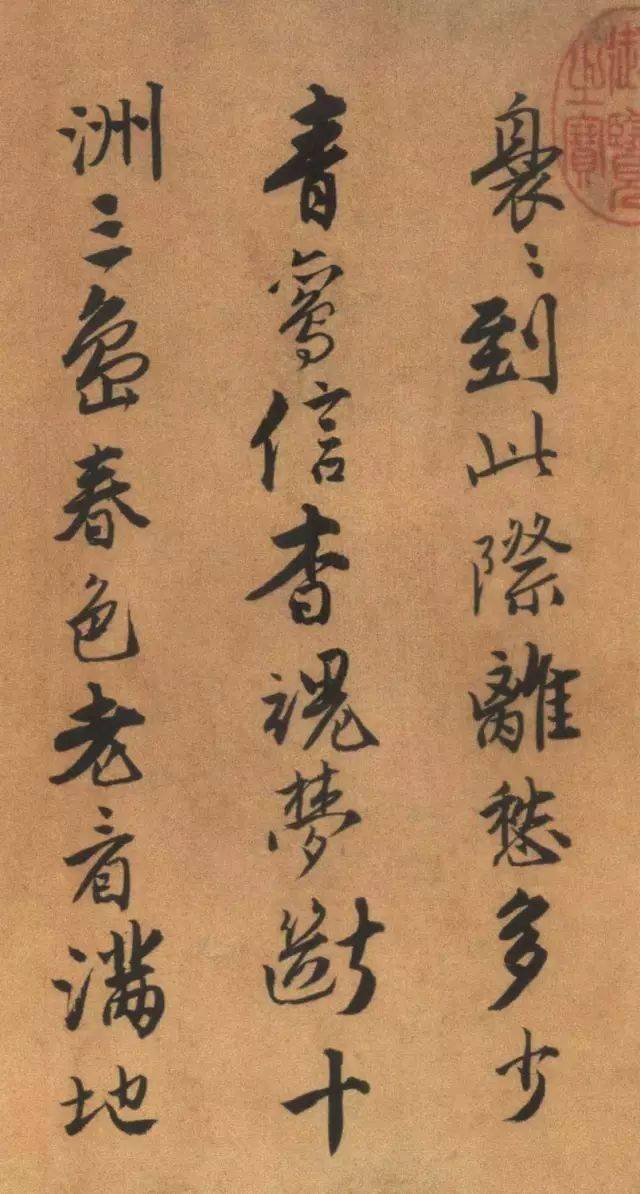 裊〻到此際離愁多少
青鸞信杳魂夢斷十
洲三島春色老看滿地
御覽
之寶